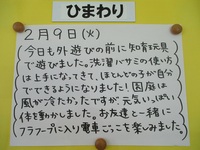 ひまわり
2月9日(火)
今日も外遊びの前に知育玩具
で遊びました。洗濯バサミの使い方
は上手になってきて、ほとんどの子が自分
でできるようになりました！園庭は
風が冷たかったですが、元気いっぱい
体を動かしました。お友達と一緒に
フラフープに入り電車ごっこを楽しみました。